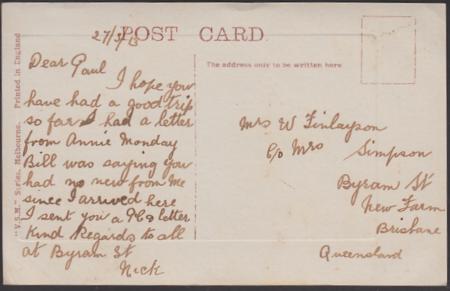 POST CARD
27/3/13
The address only to be written here
"V.S.M." Series, Melbourne. Printed in England
Dear Paul
I hope you
have had a good trip
so far I had a letter
from Annie Monday
Bill was saying you
had no new from Me
since I arrived here
I sent you a letter
Kind Regards to all
at Byram St
Nick
Mrs W Finlayson
C/o Mrs Simpson
Byram St
New Farm
Brisbane
Queensland